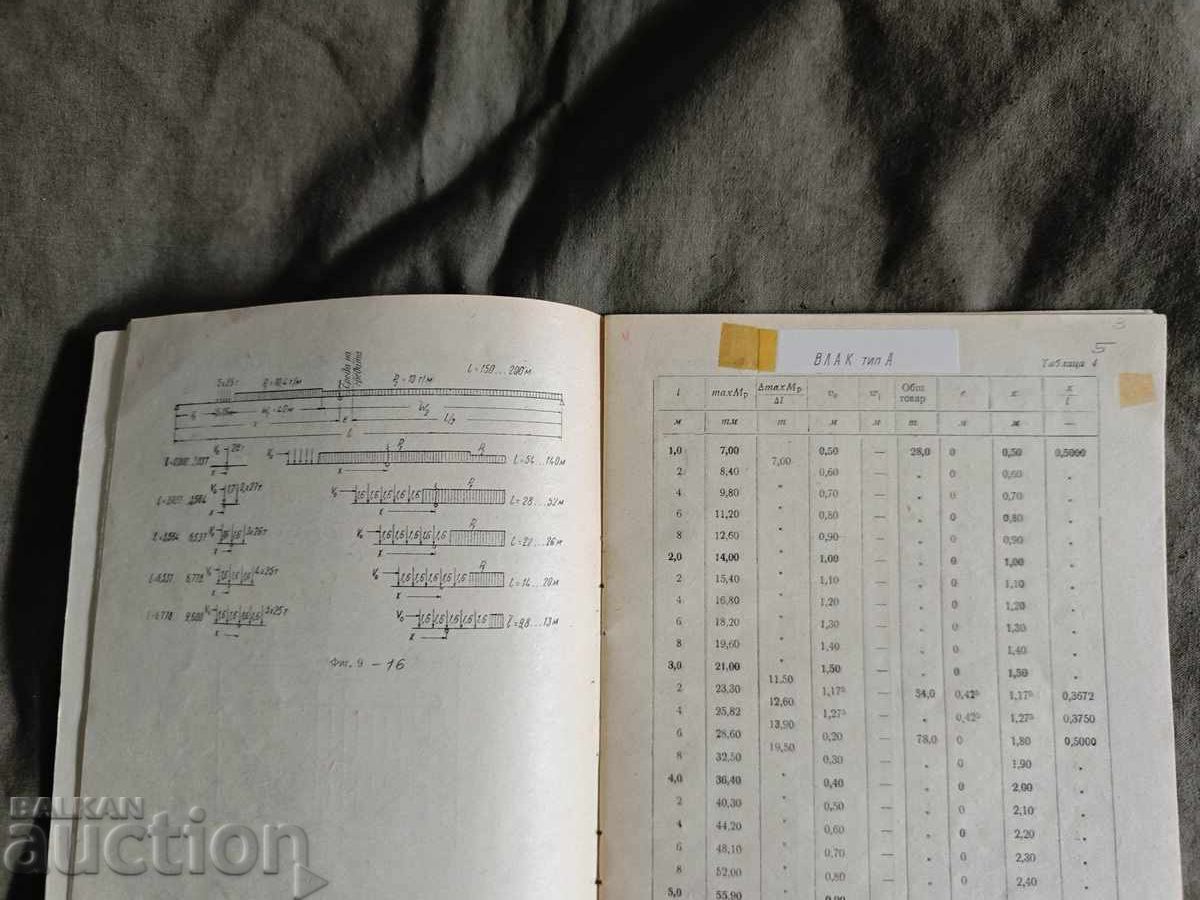 L=150...200м
5x25т
P₁=10,4 т/м
Среда на
гредата
P₂=10 т/м
W₁=40м
W₂
x
e
L/2
L
28т
L=54...140м
2x27т
L=28...52м
3x26т
L=22...26м
4x25т
L=14...20м
5x25т
L=9,8...13м
Фиг. 9 - 16
5
ВЛАК тип А
Таблица 4
l maxMp ΔmaxMp/Δl v₀ w₁ Общ товар e x x/l
м тм т м м т м м —
1,0 7,00 0,50 — 28,0 0 0,50 0,5000
7,00
2 8,40 " 0,60 — " 0 0,60 "
4 9,80 " 0,70 — " 0 0,70 "
6 11,20 " 0,80 — " 0 0,80 "
8 12,60 " 0,90 — " 0 0,90 "
2,0 14,00 " 1,00 — " 0 1,00 "
2 15,40 " 1,10 — " 0 1,10 "
4 16,80 " 1,20 — " 0 1,20 "
6 18,20 " 1,30 — " 0 1,30 "
8 19,60 " 1,40 — " 0 1,40 "
3,0 21,00 1,50 — " 0 1,50 "
11,50
2 23,30 1,17⁵ — 54,0 0,42⁵ 1,17⁵ 0,3672
12,60
4 25,82 1,27⁵ — " 0,42⁵ 1,27⁵ 0,3750
13,90
6 28,60 0,20 — 78,0 0 1,80 0,5000
19,50
8 32,50 0,30 — " 0 1,90 "
4,0 36,40 " 0,40 — " 0 2,00 "
2 40,30 " 0,50 — " 0 2,10 "
4 44,20 " 0,60 — " 0 2,20 "
6 48,10 " 0,70 — " 0 2,30 "
8 52,00 " 0,80 — " 0 2,40 "
5,0 55,90
BALKAN
auction